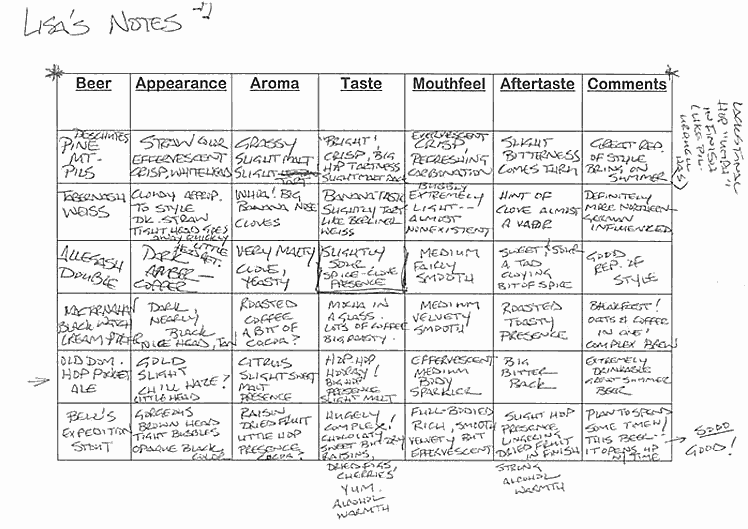 LISA'S NOTES
Beer Appearance Aroma Taste Mouthfeel Aftertaste Comments
DESCHUTES
PINE
MT.
PILS
STRAW COLOR
EFFERVESCENT
CRISP, WHITE HEAD
GRASSY
SLIGHT MALT
SLIGHT
TART
"BRIGHT"!
CRISP, BIG
HOP TARTNESS
SLIGHT MALT BACK
EFFERVESCENT
CRISP,
REFRESHING
CARBONATION
BUBBLY
SLIGHT
BITTERNESS
COMES THRU
GREAT REP.
OF STYLE
BRING ON
SUMMER
LACKS FINAL
HOP "UMPH"
IN FINISH
(LIKE PIL.
URQUELL
HAS)
TABERNASH
WEISS
CLOUDY APPROP.
TO STYLE
DK. STRAW
TIGHT HEAD GOES
AWAY QUICKLY
WHOA! BIG
BANANA NOSE
CLOVES
BANANA TASTE
SLIGHTLY TART
LIKE BERLINER
WEISS
EXTREMELY
LIGHT--
ALMOST
NONEXISTENT
HINT OF
CLOVE ALMOST
A VAPOR
DEFINITELY
MORE NORTHERN
GERMAN
INFLUENCED
ALLEGASH
DOUBLE
DARK
AMBER-
COFFEE
LITTLE
HEAD RET.
VERY MALTY
CLOVE,
YEASTY
SLIGHTLY
SOUR
SPICE-CLOVE
PRESENCE
MEDIUM
FAIRLY
SMOOTH
SWEET & SOUR
A TAD
CLOYING
BIT OF SPICE
GOOD
REP. OF
STYLE
BLACK WATCH
CREAM PORTER
DARK
NEARLY
BLACK
NICE HEAD, TAN
ROASTED
COFFEE
A BIT OF
COCOA?
MOCHA IN
A GLASS.
LOTS OF COFFEE
BIG ROASTY.
MEDIUM
VELVETY
SMOOTH
ROASTED
TOASTY
PRESENCE
BREAKFAST!
OATS & COFFEE
IN ONE!
COMPLEX BREW
OLD DOM.
HOP POCKET
ALE
GOLD
SLIGHT
CHILL HAZE?
LITTLE HEAD
CITRUS
SLIGHT SWEET
MALT
PRESENCE
HOP HOP
HOORAY!
BIG HOP
PRESENCE
SLIGHT MALT
EFFERVESCENT
MEDIUM
BODY
SPARKLER
BIG
BITTER
BACK
EXTREMELY
DRINKABLE
GREAT SUMMER
BEER
BELL'S
EXPEDITION
STOUT
GORGEOUS
BROWN HEAD
TIGHT BUBBLES
OPAQUE BLACK
COLOR
RAISIN
DRIED FRUIT
LITTLE HOP
PRESENCE
COCOA?
HUGELY
COMPLEX!
CHOCOLATY
SWEET BUT DRY
RAISINS,
DRIED FIGS,
CHERRIES
YUM.
ALCOHOL
WARMTH
FULL-BODIED
RICH, SMOOTH
VELVETY BUT
EFFERVESCENT
SLIGHT HOP
PRESENCE
LINGERING
DRIED FRUIT
IN FINISH
STRONG
ALCOHOL
WARMTH
PLAN TO SPEND
SOME TIME W/
THIS BEER--
IT OPENS UP
W/ TIME
SOOO
GOOD!